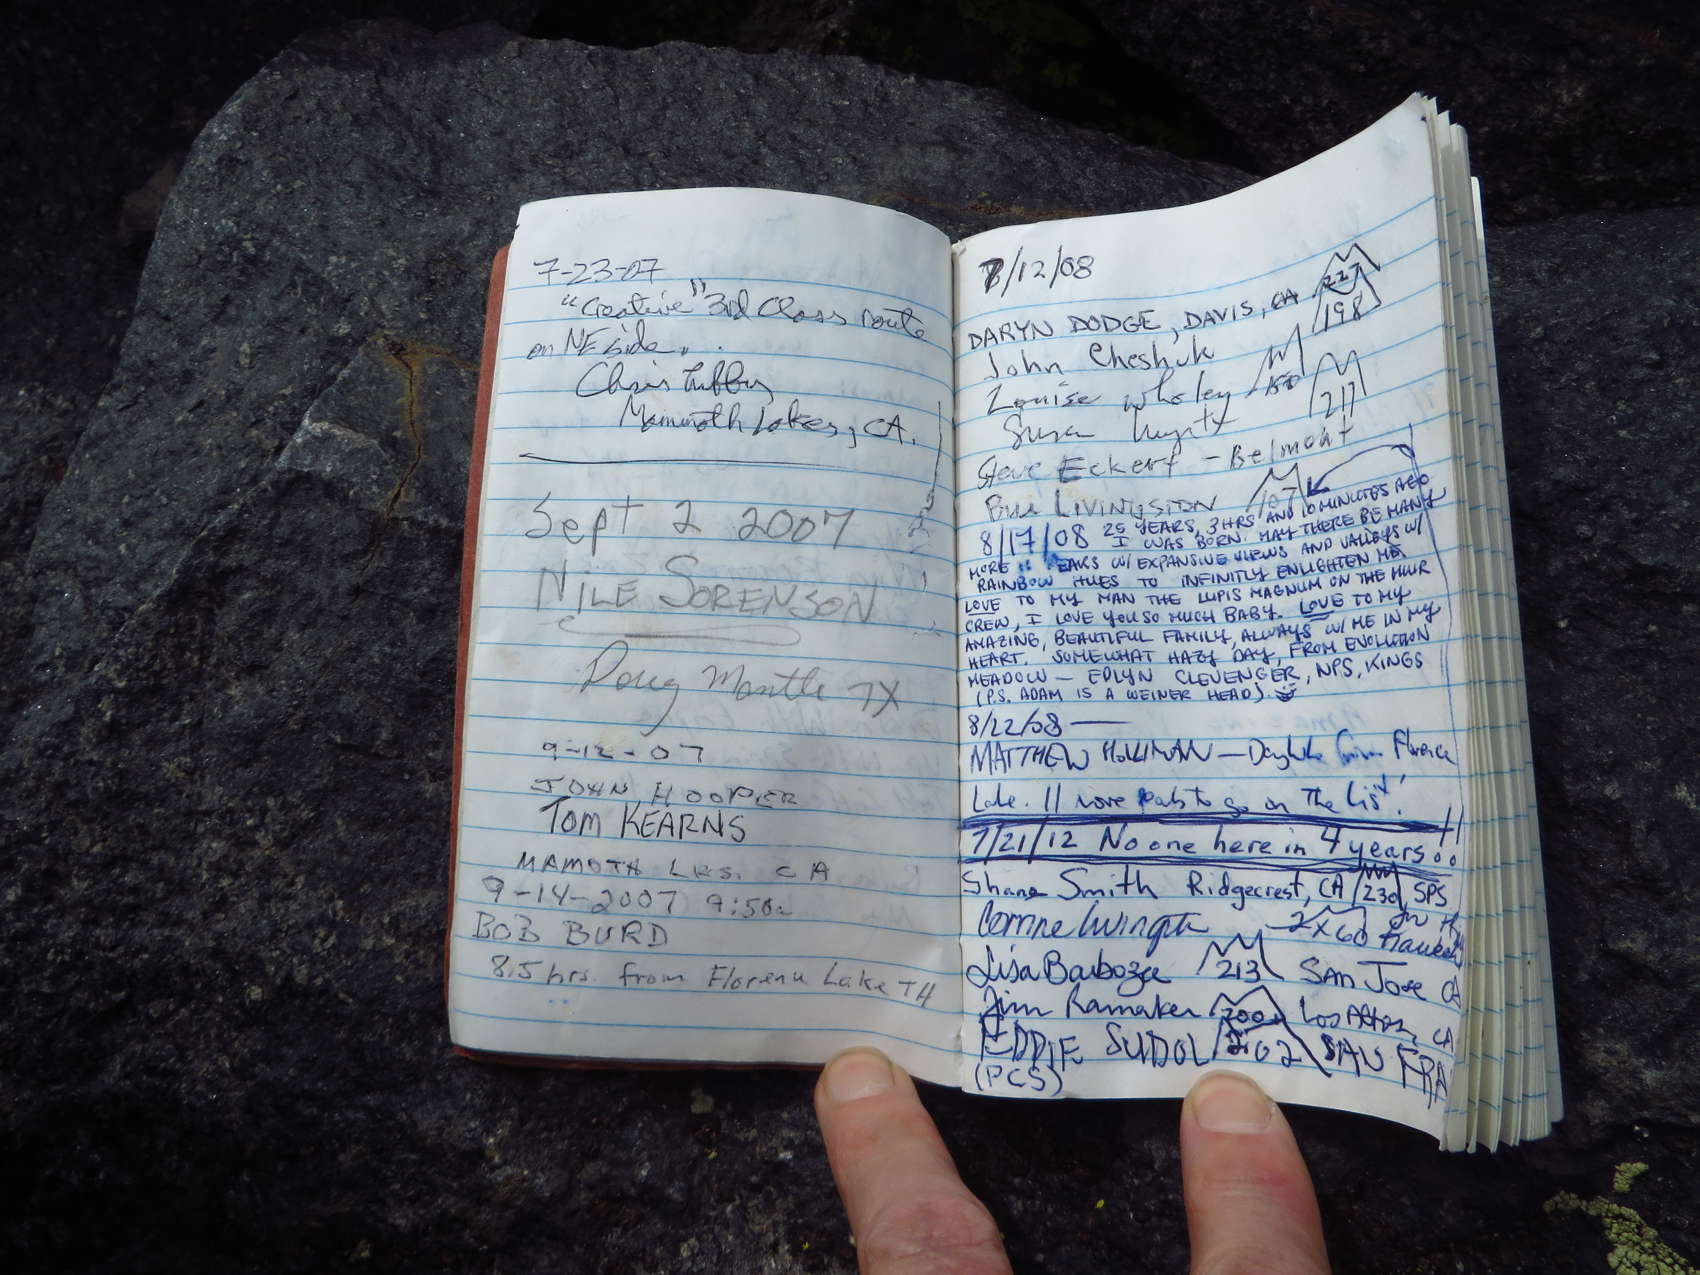 7-23-07
"Creative" 3rd Class route
on NE side...
Chris
Mammoth Lakes, CA.
Sept 2 2007
NILE SORENSON
Doug Mantle TX
9-12-07
JOHN HOOPER
TOM KEARNS
MAMOTH LKS. CA
9-14-2007 9:50a
BOB BURD
8.5 hrs. from Florence Lake TH
/12/08
DARYN DODGE, DAVIS, CA 227
John Cheshuk 198
Louise Wholey 150
Susan 217
Steve Eckert - Belmont
Bill LIVINGSTON 107
8/17/08 25 YEARS, 3 HRS AND 10 MINUTES AGO
I WAS BORN. MAY THERE BE MANY
MORE PEAKS W/ EXPANSIVE VIEWS AND VALLEYS W/
RAINBOW HUES TO INFINITLY ENLIGHTEN ME.
LOVE TO MY MAN THE LUPIS MAGNUM ON THE MUIR
CREW, I LOVE YOU SO MUCH BABY. LOVE TO MY
AMAZING, BEAUTIFUL FAMILY, ALWAYS W/ ME IN MY
HEART. SOMEWHAT HAZY DAY, FROM EVOLUTION
MEADOW — EDLYN CLEVENGER, NPS, KINGS
(P.S. ADAM IS A WEINER HEAD).
8/22/08 —
MATTHEW HOLLIMAN — Dayhike from Florence
Lake. 11 more peaks to go on the list!
7/21/12 No one here in 4 years..!!
Shane Smith Ridgecrest, CA 230 SPS
Corrine Livingston 2x60
Lisa Barboza 213 SAN Jose CA
Jim Ramaker 200 Los Altos, CA
EDDIE SUDOL 202 SAN FRA
(PCS)